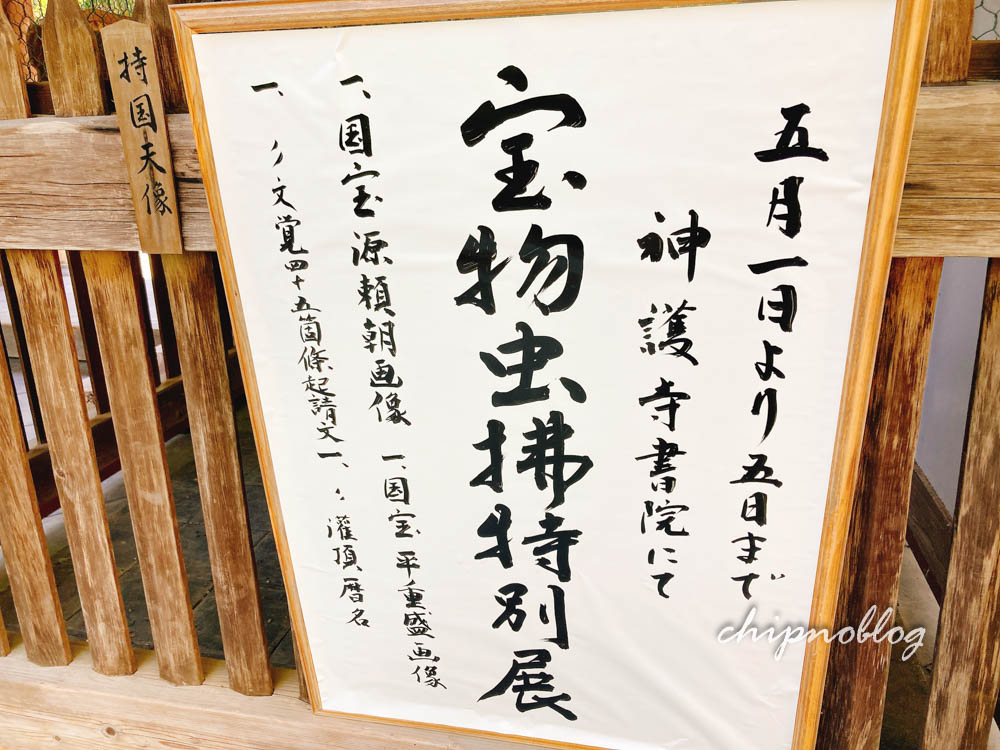 五月一日より五日まで
神護寺書院にて
宝物虫拂特別展
一、国宝源頼朝画像
一、国宝平重盛画像
一、〃文覚四十五箇條起請文
一、〃灌頂暦名
持国天像
chipnoblog